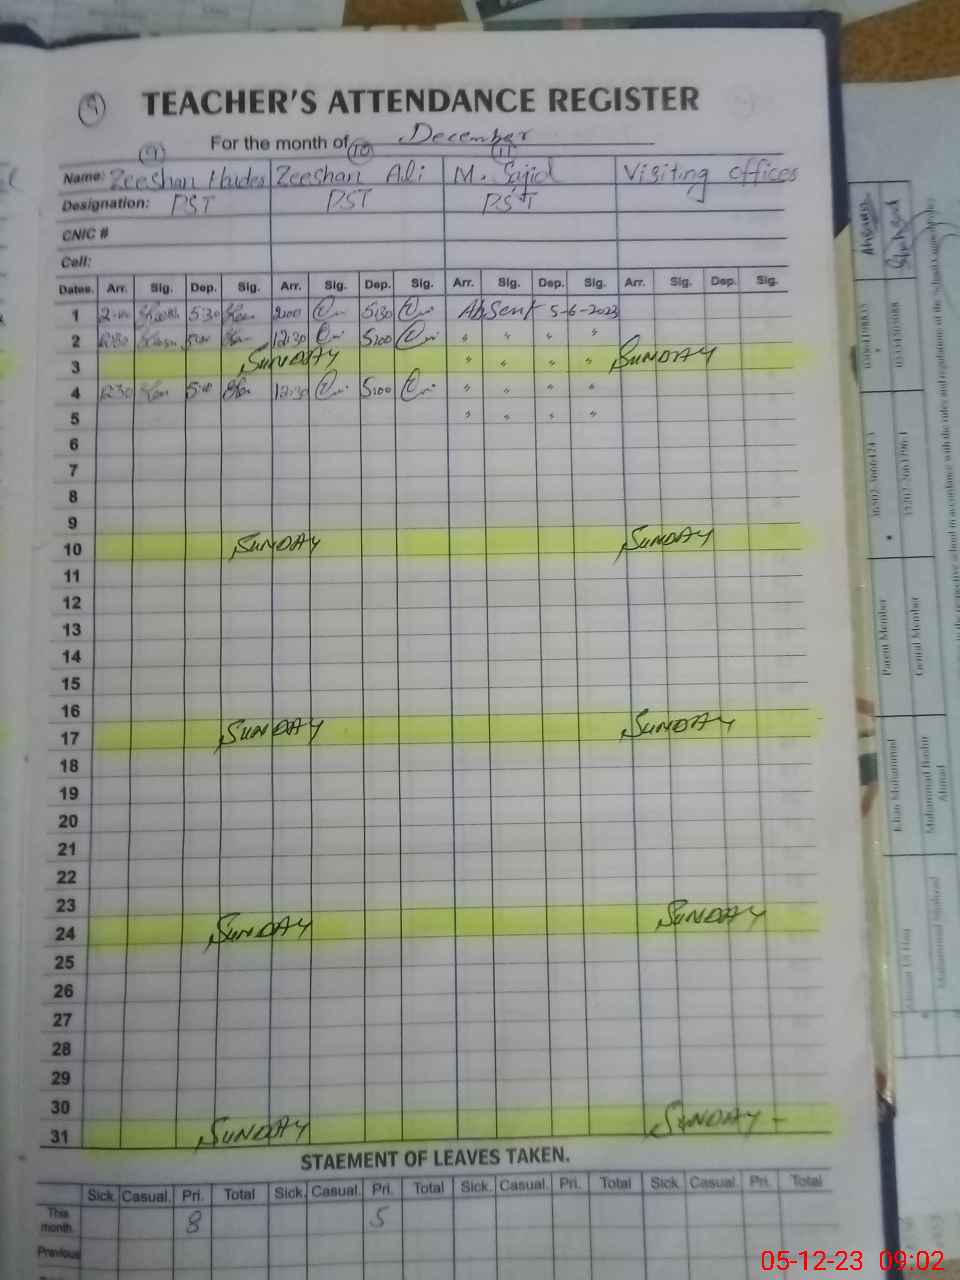 9 TEACHER'S ATTENDANCE REGISTER
For the month of December
9 10 11
Name: Zeeshan Haider Zeeshan Ali M. Sajid Visiting officer
Designation: PST PST PST
CNIC #
Cell:
Dates. Arr. Sig. Dep. Sig. Arr. Sig. Dep. Sig. Arr. Sig. Dep. Sig. Arr. Sig. Dep. Sig.
1 2:00 5:30 2:00 5:30 Absent 5-6-2023
2 12:30 5:00 12:30 5:00 " " " "
3 SUNDAY " " " " SUNDAY
4 12:30 5:00 12:30 5:00 " " " "
5 " " " "
6
7
8
9
10 SUNDAY SUNDAY
11
12
13
14
15
16
17 SUNDAY SUNDAY
18
19
20
21
22
23
24 SUNDAY SUNDAY
25
26
27
28
29
30
31 SUNDAY SUNDAY
STAEMENT OF LEAVES TAKEN.
Sick. Casual. Pri. Total Sick. Casual. Pri. Total Sick. Casual. Pri. Total Sick. Casual. Pri. Total
This month. 8 5
Previous
Parent Member
Genral Member
Khan Muhammad
Muhammad Bashir Ahmad
05-12-23 09:02